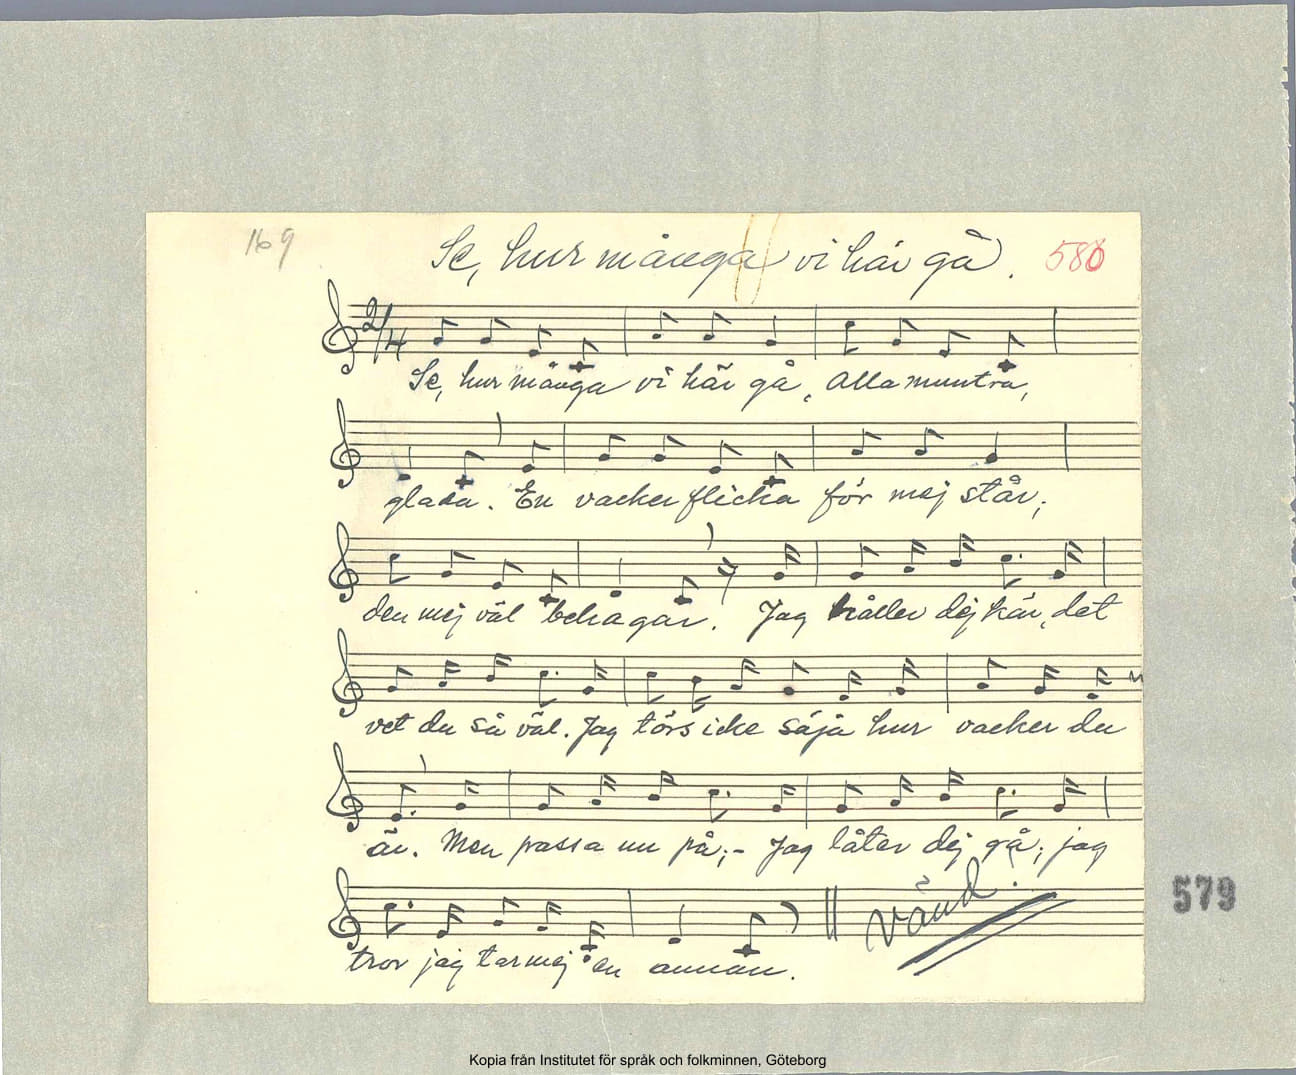 169
Se, hur många vi här gå.
580
2/4
Se, hur många vi här gå, alla muntra,
glada. En vacker flicka för mej står;
den mej väl behagar. Jag håller dej kär, det
vet du så väl. Jag törs icke säja hur vacker du
är. Men passa nu på;- Jag låter dej gå; jag
Vänd.
579
tror jag tar mej en annan.
Kopia från Institutet för språk och folkminnen, Göteborg